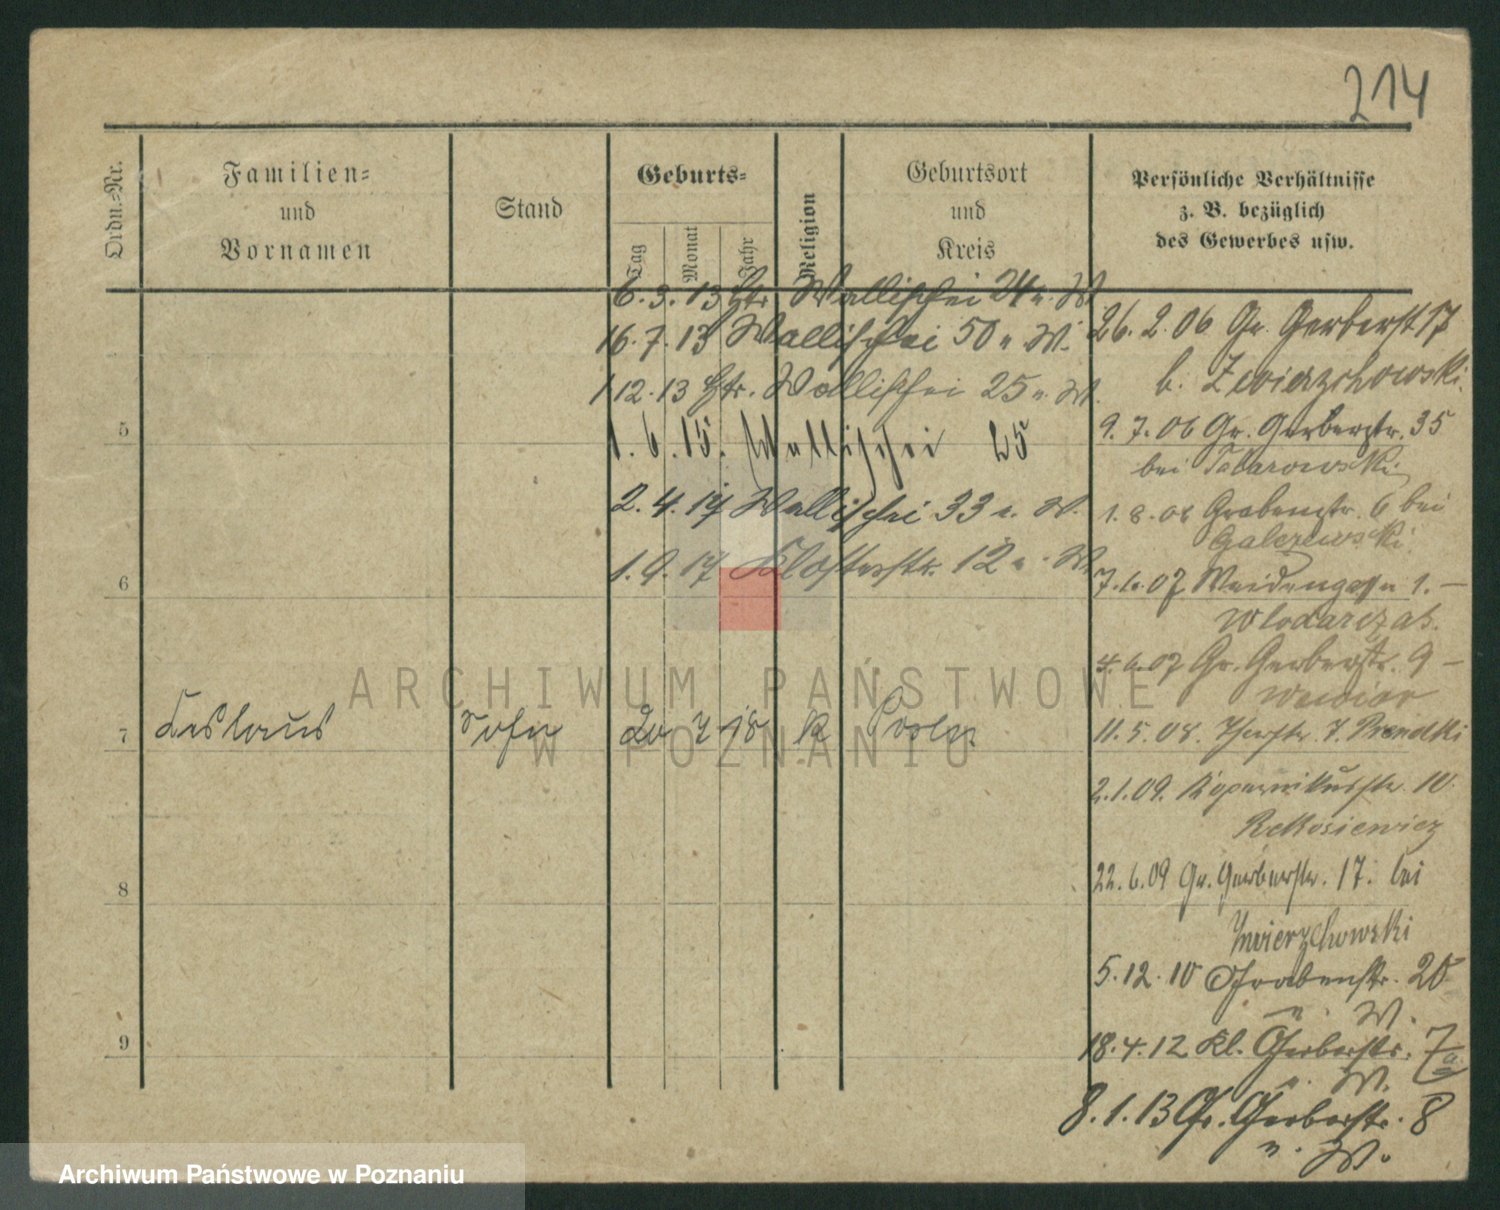 214
Ordn.-Nr.
Familien=
und
Vornamen
Stand
Geburts=
Tag
Monat
Jahr
Religion
Geburtsort
und
Kreis
Persönliche Verhältnisse
z. B. bezüglich
des Gewerbes usw.
6. 3. 13 Htr Wallischei 24 n. W
16. 7. 13 Wallischei 50 n W.
1 12. 13 Htr. Wallischei 25 n. W.
1. 6. 15. Wallischei 25
2. 4. 17 Wallischei 33 n. W.
1. 9. 17 Klosterstr. 12 n. W.
5
6
7 Ceslaus Sohn 20 7 18 K Posen
8
9
26. 2. 06 Gr. Gerberst 17
b. Zwierzchowski
9. 7. 06 Gr. Gerberstr. 35
bei Tabarowski
1. 8. 06 Grabenstr. 6 bei
Galezewski
7. 6. 07 Weidengasse 1. —
Wlodarczak.
4. 6. 07 Gr. Gerberstr. 9 —
11. 5. 08. 7.
2. 1. 09. Kopernikusstr. 10
Rekosiewicz
22. 6. 09 Gr. Gerberstr. 17. bei
Zwierzchowski
5. 12. 10 Grabenstr. 20
n. W.
18. 4. 12 Kl. Gerberstr. 7a
n. W.
8. 1. 13 Gr. Gerberstr. 8
n. W.
ARCHIWUM PAŃSTWOWE
W POZNANIU
Archiwum Państwowe w Poznaniu